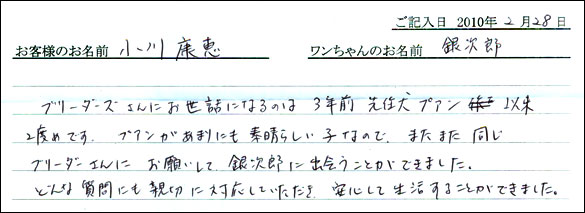 ご記入日 2010年2月28日
お客様のお名前 小川 康恵 ワンちゃんのお名前 銀次郎
ブリーダーズさんにお世話になるのは 3年前 先住犬プアン 以来
2度めです。プアンがあまりにも素晴らしい子なので、またまた同じ
ブリーダーさんに お願いして 銀次郎に出会うことができました。
どんな質問にも親切に対応していただき 安心して生活することができました。